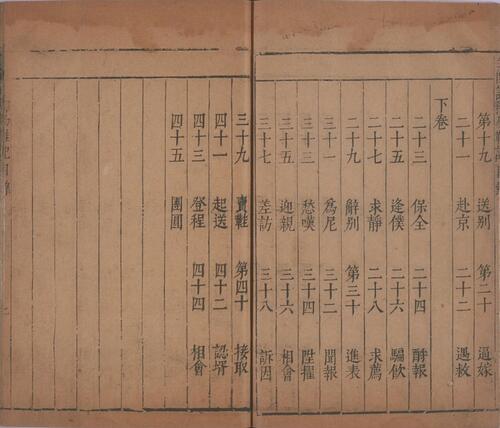 第十九 送別 第二十 逼嫁
二十一 赴京 二十二 遇救
下卷
二十三 保全 二十四 酧報
二十五 逢僕 二十六
二十七 求靜 二十八 求薦
二十九 辭別 第三十 進表
三十一 爲尼 三十二 聞報
三十三 愁嘆 三十四 陞擢
三十五 迎親 三十六 相會
三十七 差訪 三十八 訴因
三十九 賣鞋 第四十 接取
四十一 起送 四十二 認壻
四十三 登程 四十四 相會
四十五 團圓